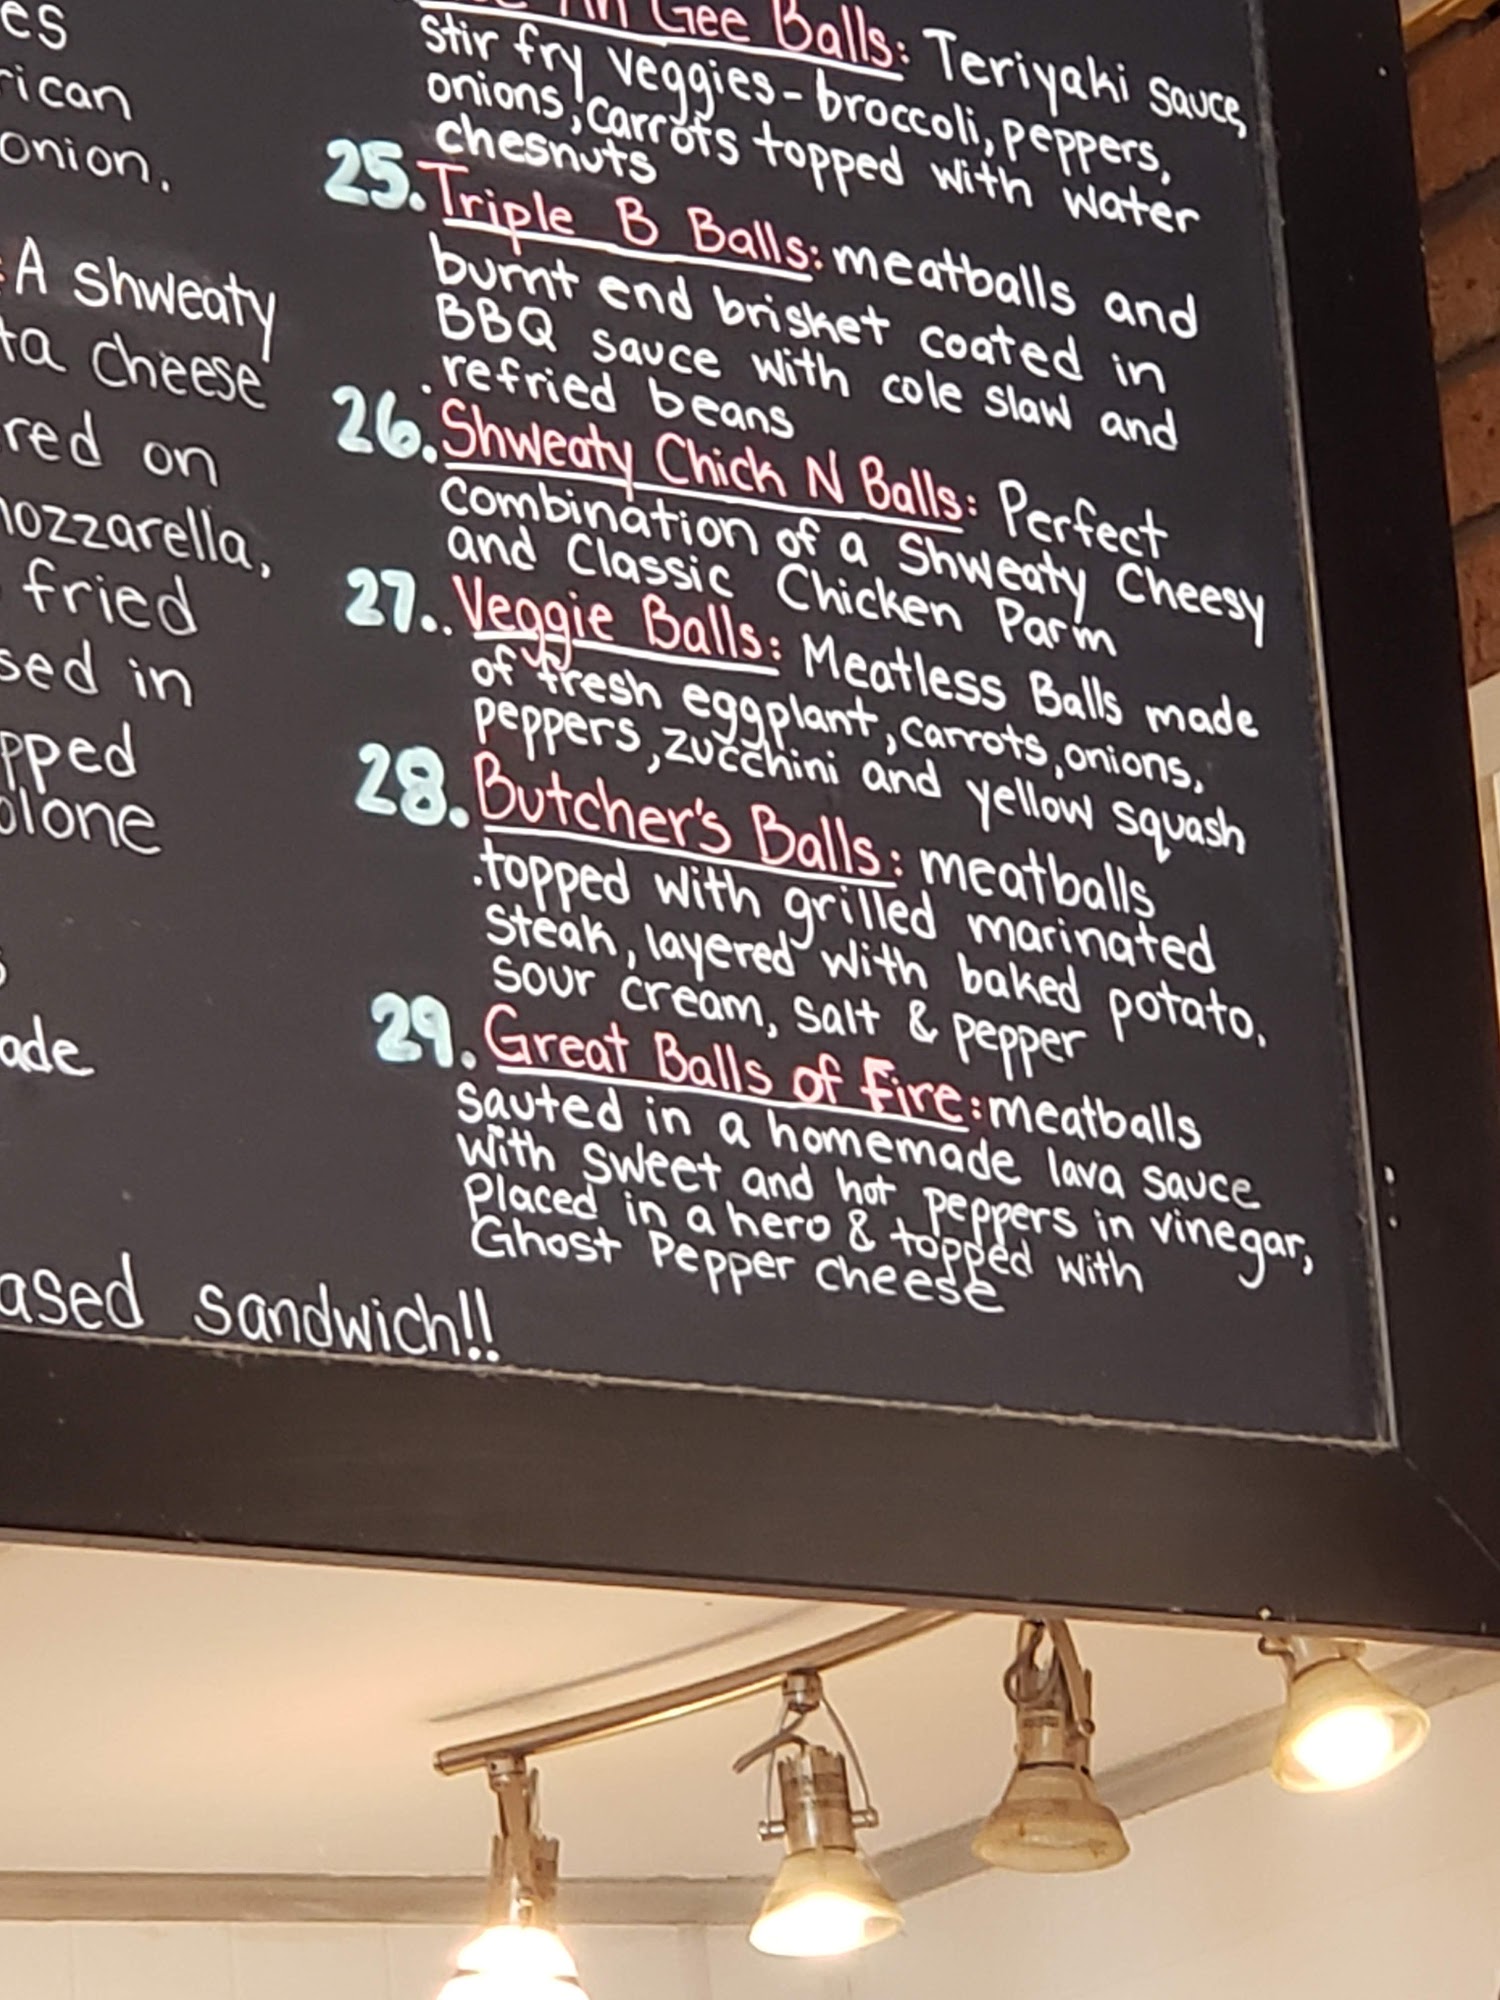 es
rican
onion.
: A shweaty
ta cheese
red on
mozzarella,
fried
sed in
pped
olone
ade
ased sandwich!!
Gee Balls: Teriyaki sauce,
stir fry veggies - broccoli, peppers,
onions, carrots topped with water
chesnuts
25. Triple B Balls: meatballs and
burnt end brisket coated in
BBQ sauce with cole slaw and
refried beans
26. Shweaty Chick N Balls: Perfect
combination of a Shweaty Cheesy
and Classic Chicken Parm
27. Veggie Balls: Meatless Balls made
of fresh eggplant, carrots, onions,
peppers, zucchini and yellow squash
28. Butcher's Balls: meatballs
topped with grilled marinated
steak, layered with baked potato,
sour cream, salt & pepper
29. Great Balls of Fire: meatballs
sauted in a homemade lava sauce
with sweet and hot peppers in vinegar,
Placed in a hero & topped with
Ghost Pepper cheese